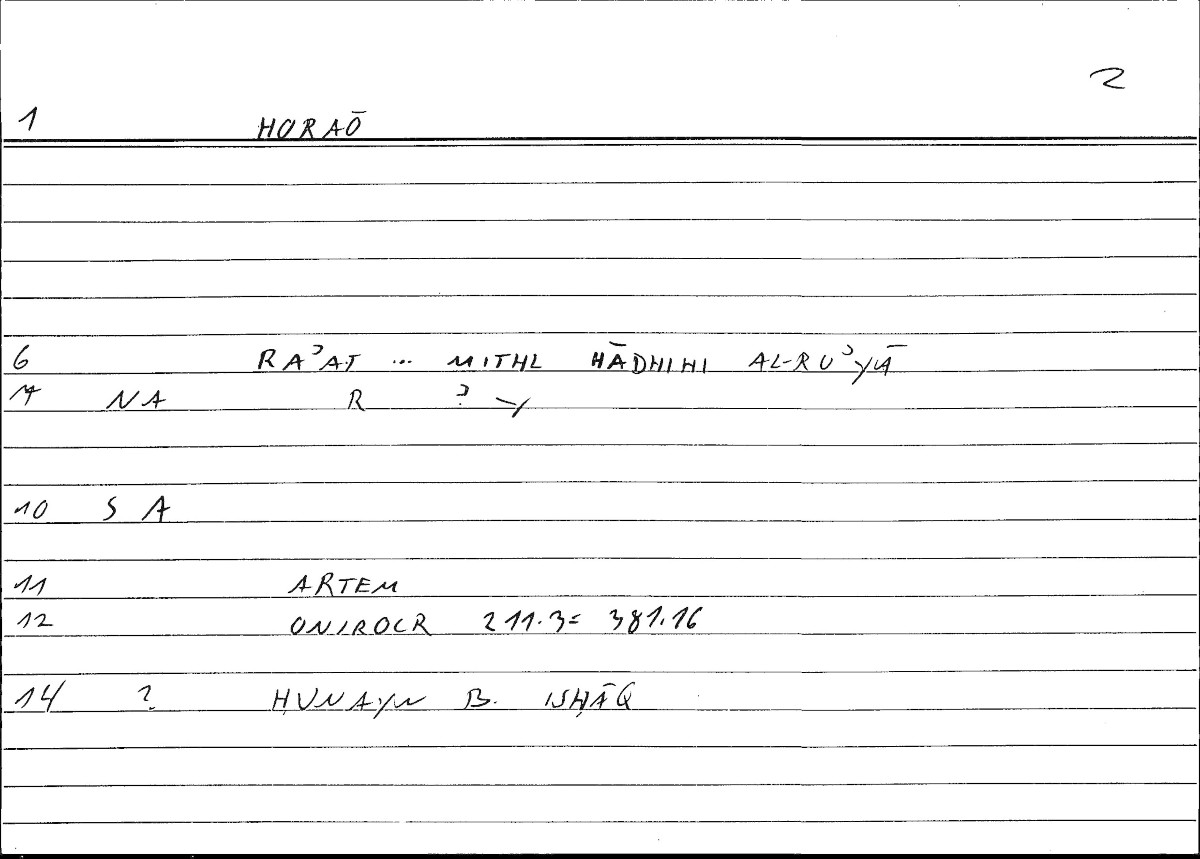 2
1 HORAŌ
6 RAʾAT ... MITHL HĀDHIHI AL-RUʾYĀ
7 NA R ʾ y
10 S A
11 ARTEM
12 ONIROCR 211.3= 381.16
14 ? ḤUNAYN B. ISḤĀQ